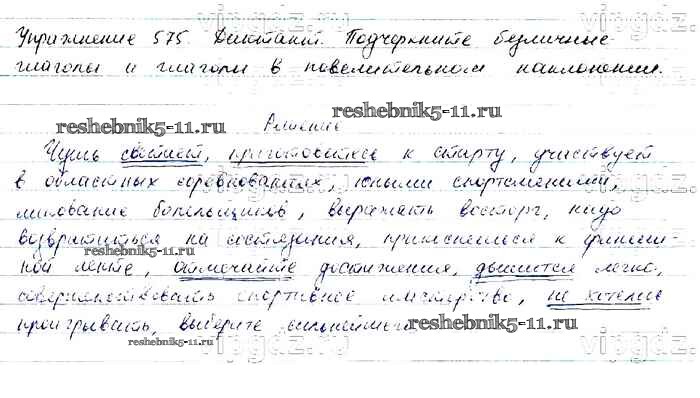 Упражнение 575. Диктант. Подчеркните безличные
глаголы и глаголы в повелительном наклонении.
reshebnik5-11.ru
Решение
Чуть светает, приготовьтесь к старту, участвует
в областных соревнованиях, юными спортсменами,
ликование болельщиков, выражать восторг, надо
возвратиться на состязания, к финиш-
reshebnik5-11.ru
ной ленте, отмечайте достижения, дышится легко,
совершенствовать спортивное мастерство, не хотелось
проигрывать, выберите
reshebnik5-11.ru
reshebnik5-11.ru
vipgdz.ru